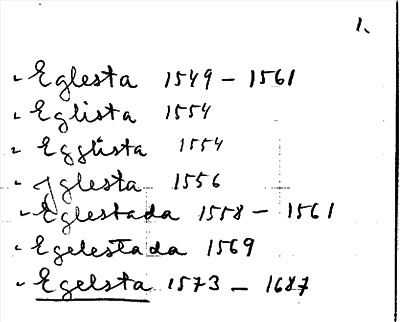 1.
- Eglesta 1549 - 1561
- Eglista 1554
- Egglista 1554
- Iglesta 1556
- Eglestada 1558 - 1561
- Egelestada 1569
- Egelsta 1573 - 1687